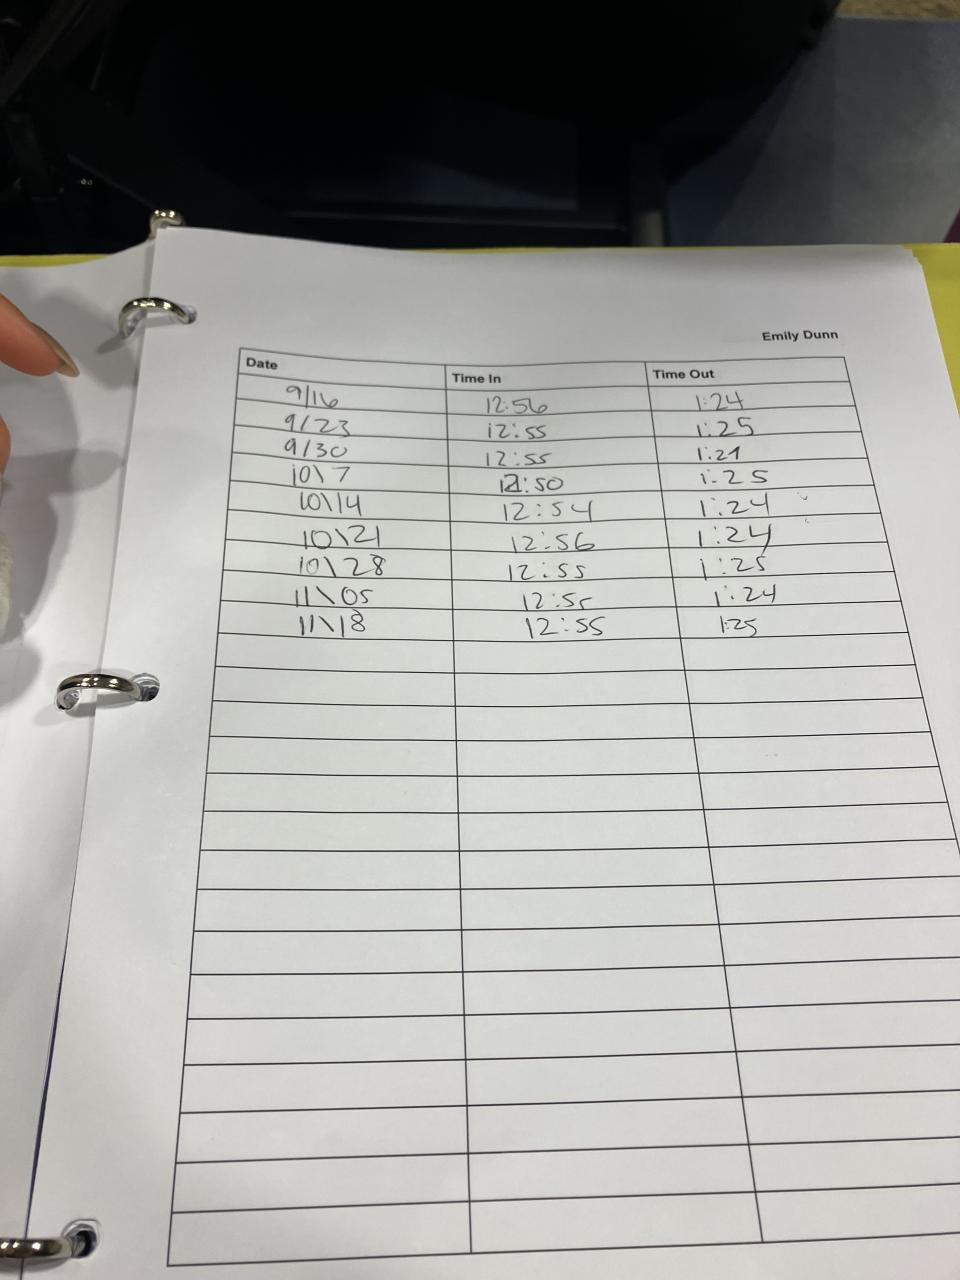 Emily Dunn
Date Time In Time Out
9/16 12:56 1:24
9/23 12:55 1:25
9/30 12:55 1:21
10\7 12:50 1:25
10\14 12:54 1:24
10\21 12:56 1:24
10\28 12:55 1:25
11\05 12:55 1:24
11\18 12:55 1:25